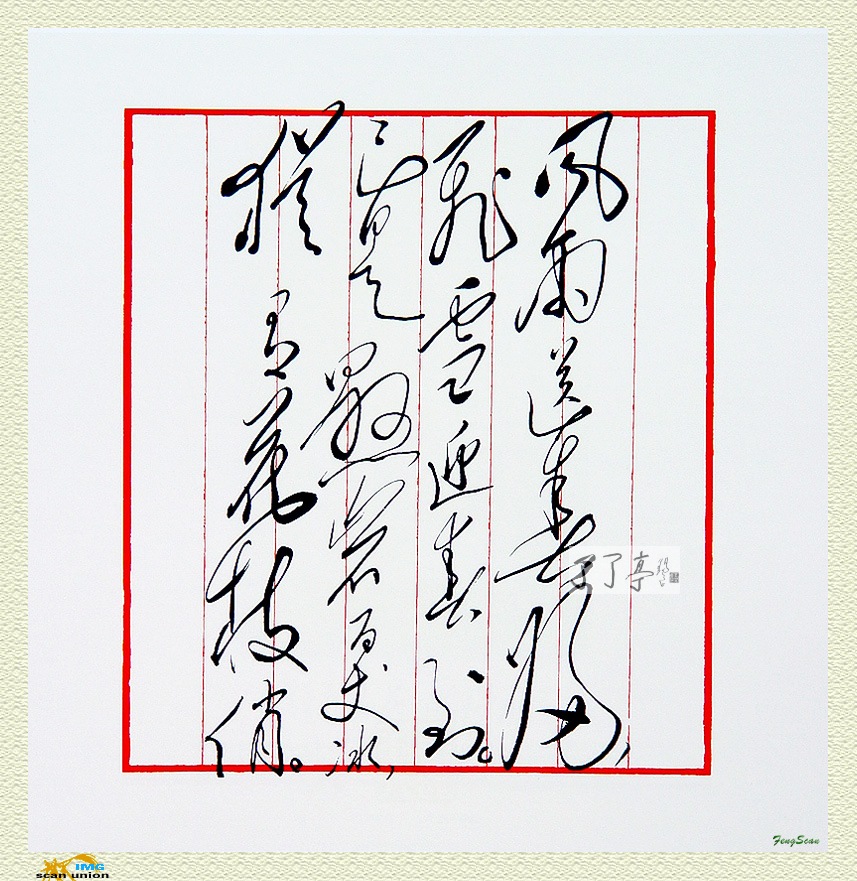 風雨送春歸，
飛雪迎春到。
已是懸岩百丈冰，
猶有花枝俏。
FengScan
IMG
scan union